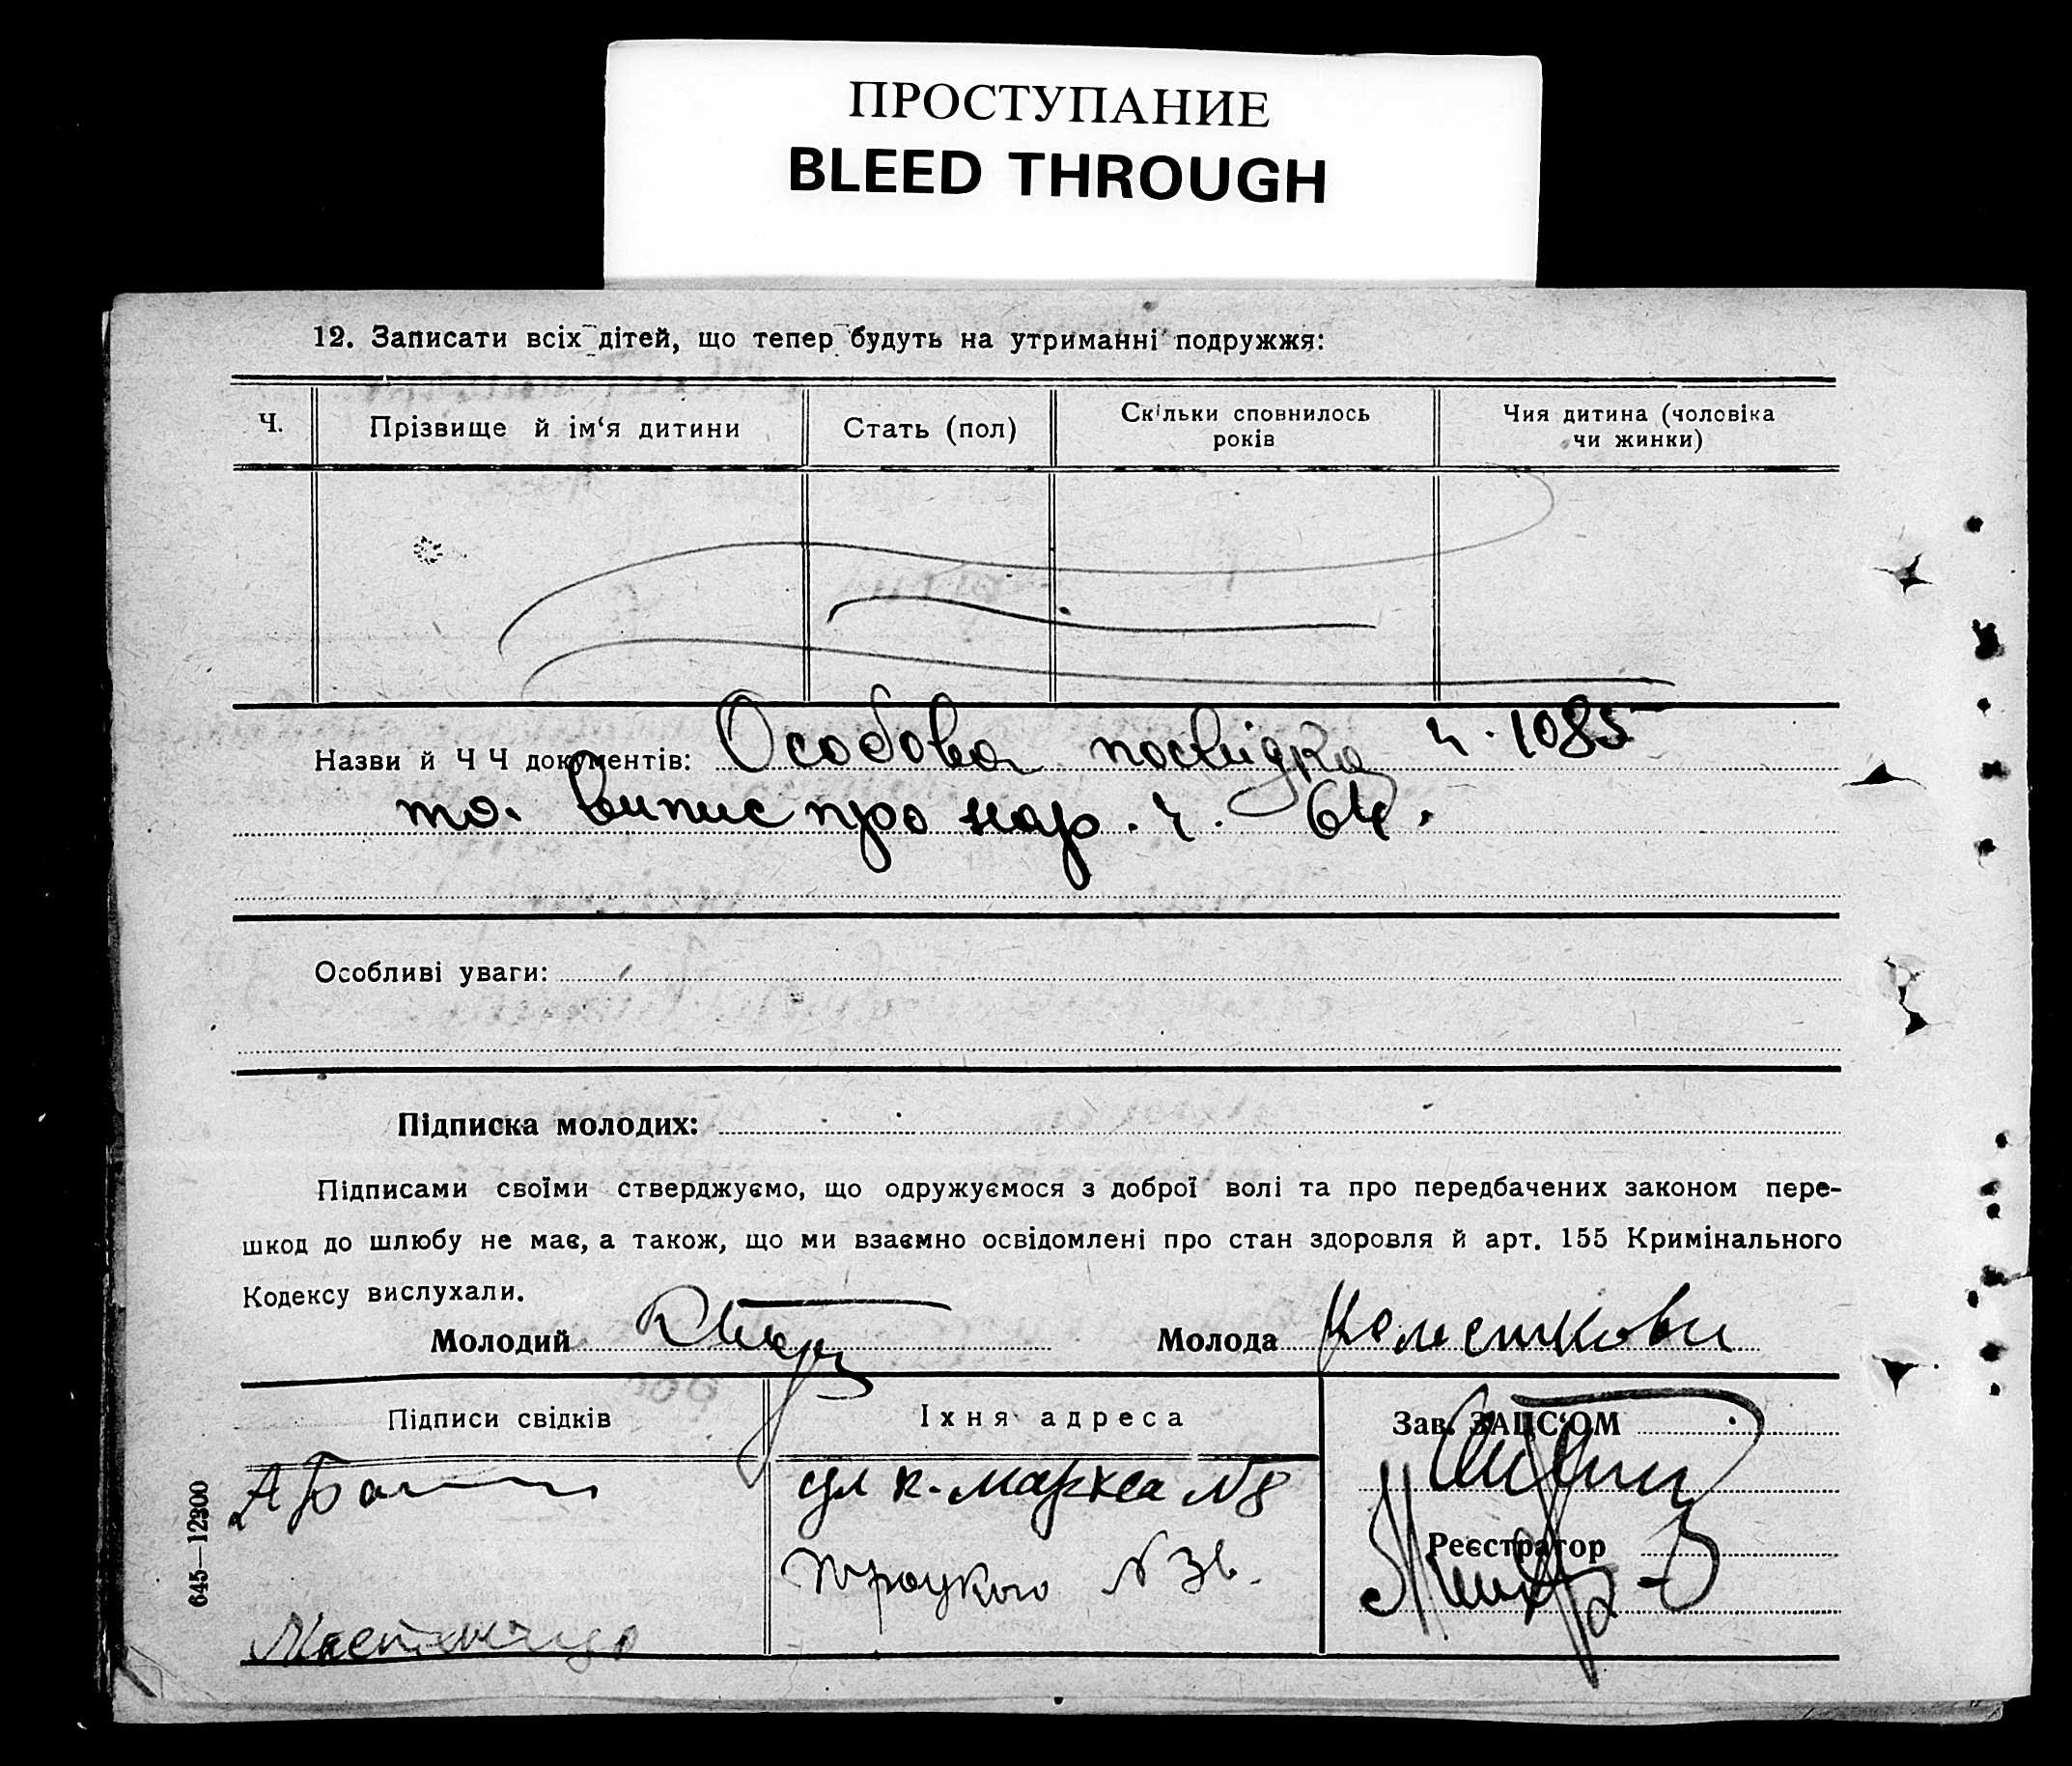 ПРОСТУПАНИЕ
BLEED THROUGH
12. Записати всіх дітей, що тепер будуть на утриманні подружжя:
Ч.
Прізвище й ім‘я дитини
Стать (пол)
Скільки сповнилось
років
Чия дитина (чоловіка
чи жинки)
Назви й Ч Ч документів: Особова посвідка ч. 1085
та. Випис про нар. ч. 64.
Особливі уваги:
Підписка молодих:
Підписами своїми стверджуємо, що одружуємося з доброї волі та про передбачених законом пере-
шкод до шлюбу не має, а також, що ми взаємно освідомлені про стан здоровля й арт. 155 Кримінального
Кодексу вислухали.
Молодий
Молода
Підписи свідків
Їхня адреса
Зав. ЗАЦС‘ОМ
ул к. маркса N8
Троцкого N
Реєстратор
645—12300